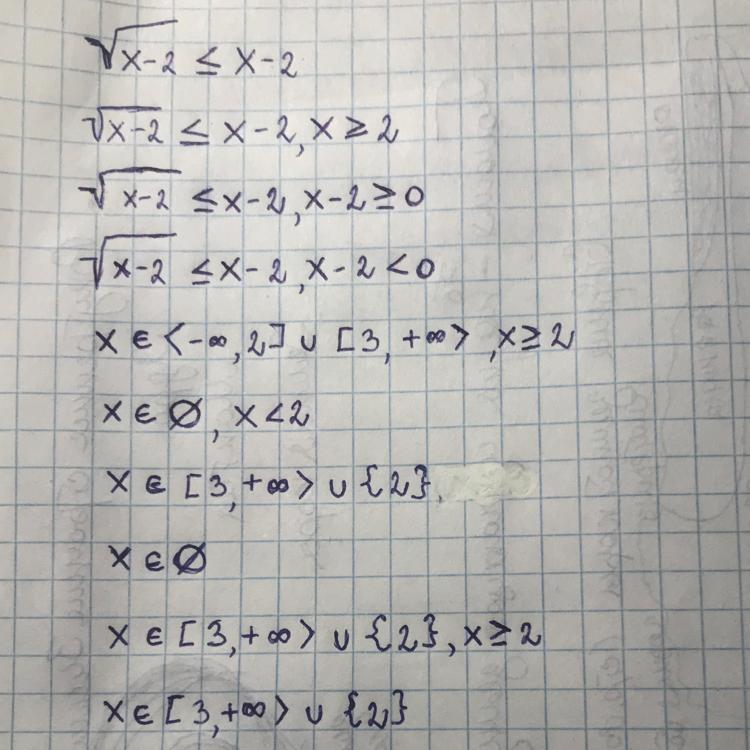 √x-2 ≤ x-2
√x-2 ≤ x-2, x ≥ 2
√x-2 ≤ x-2, x-2 ≥ 0
√x-2 ≤ x-2, x-2 < 0
x ∈ ⟨-∞, 2] ∪ [3, +∞⟩, x ≥ 2
x ∈ Ø, x < 2
x ∈ [3, +∞⟩ ∪ {2}
x ∈ Ø
x ∈ [3, +∞⟩ ∪ {2}, x ≥ 2
x ∈ [3, +∞⟩ ∪ {2}